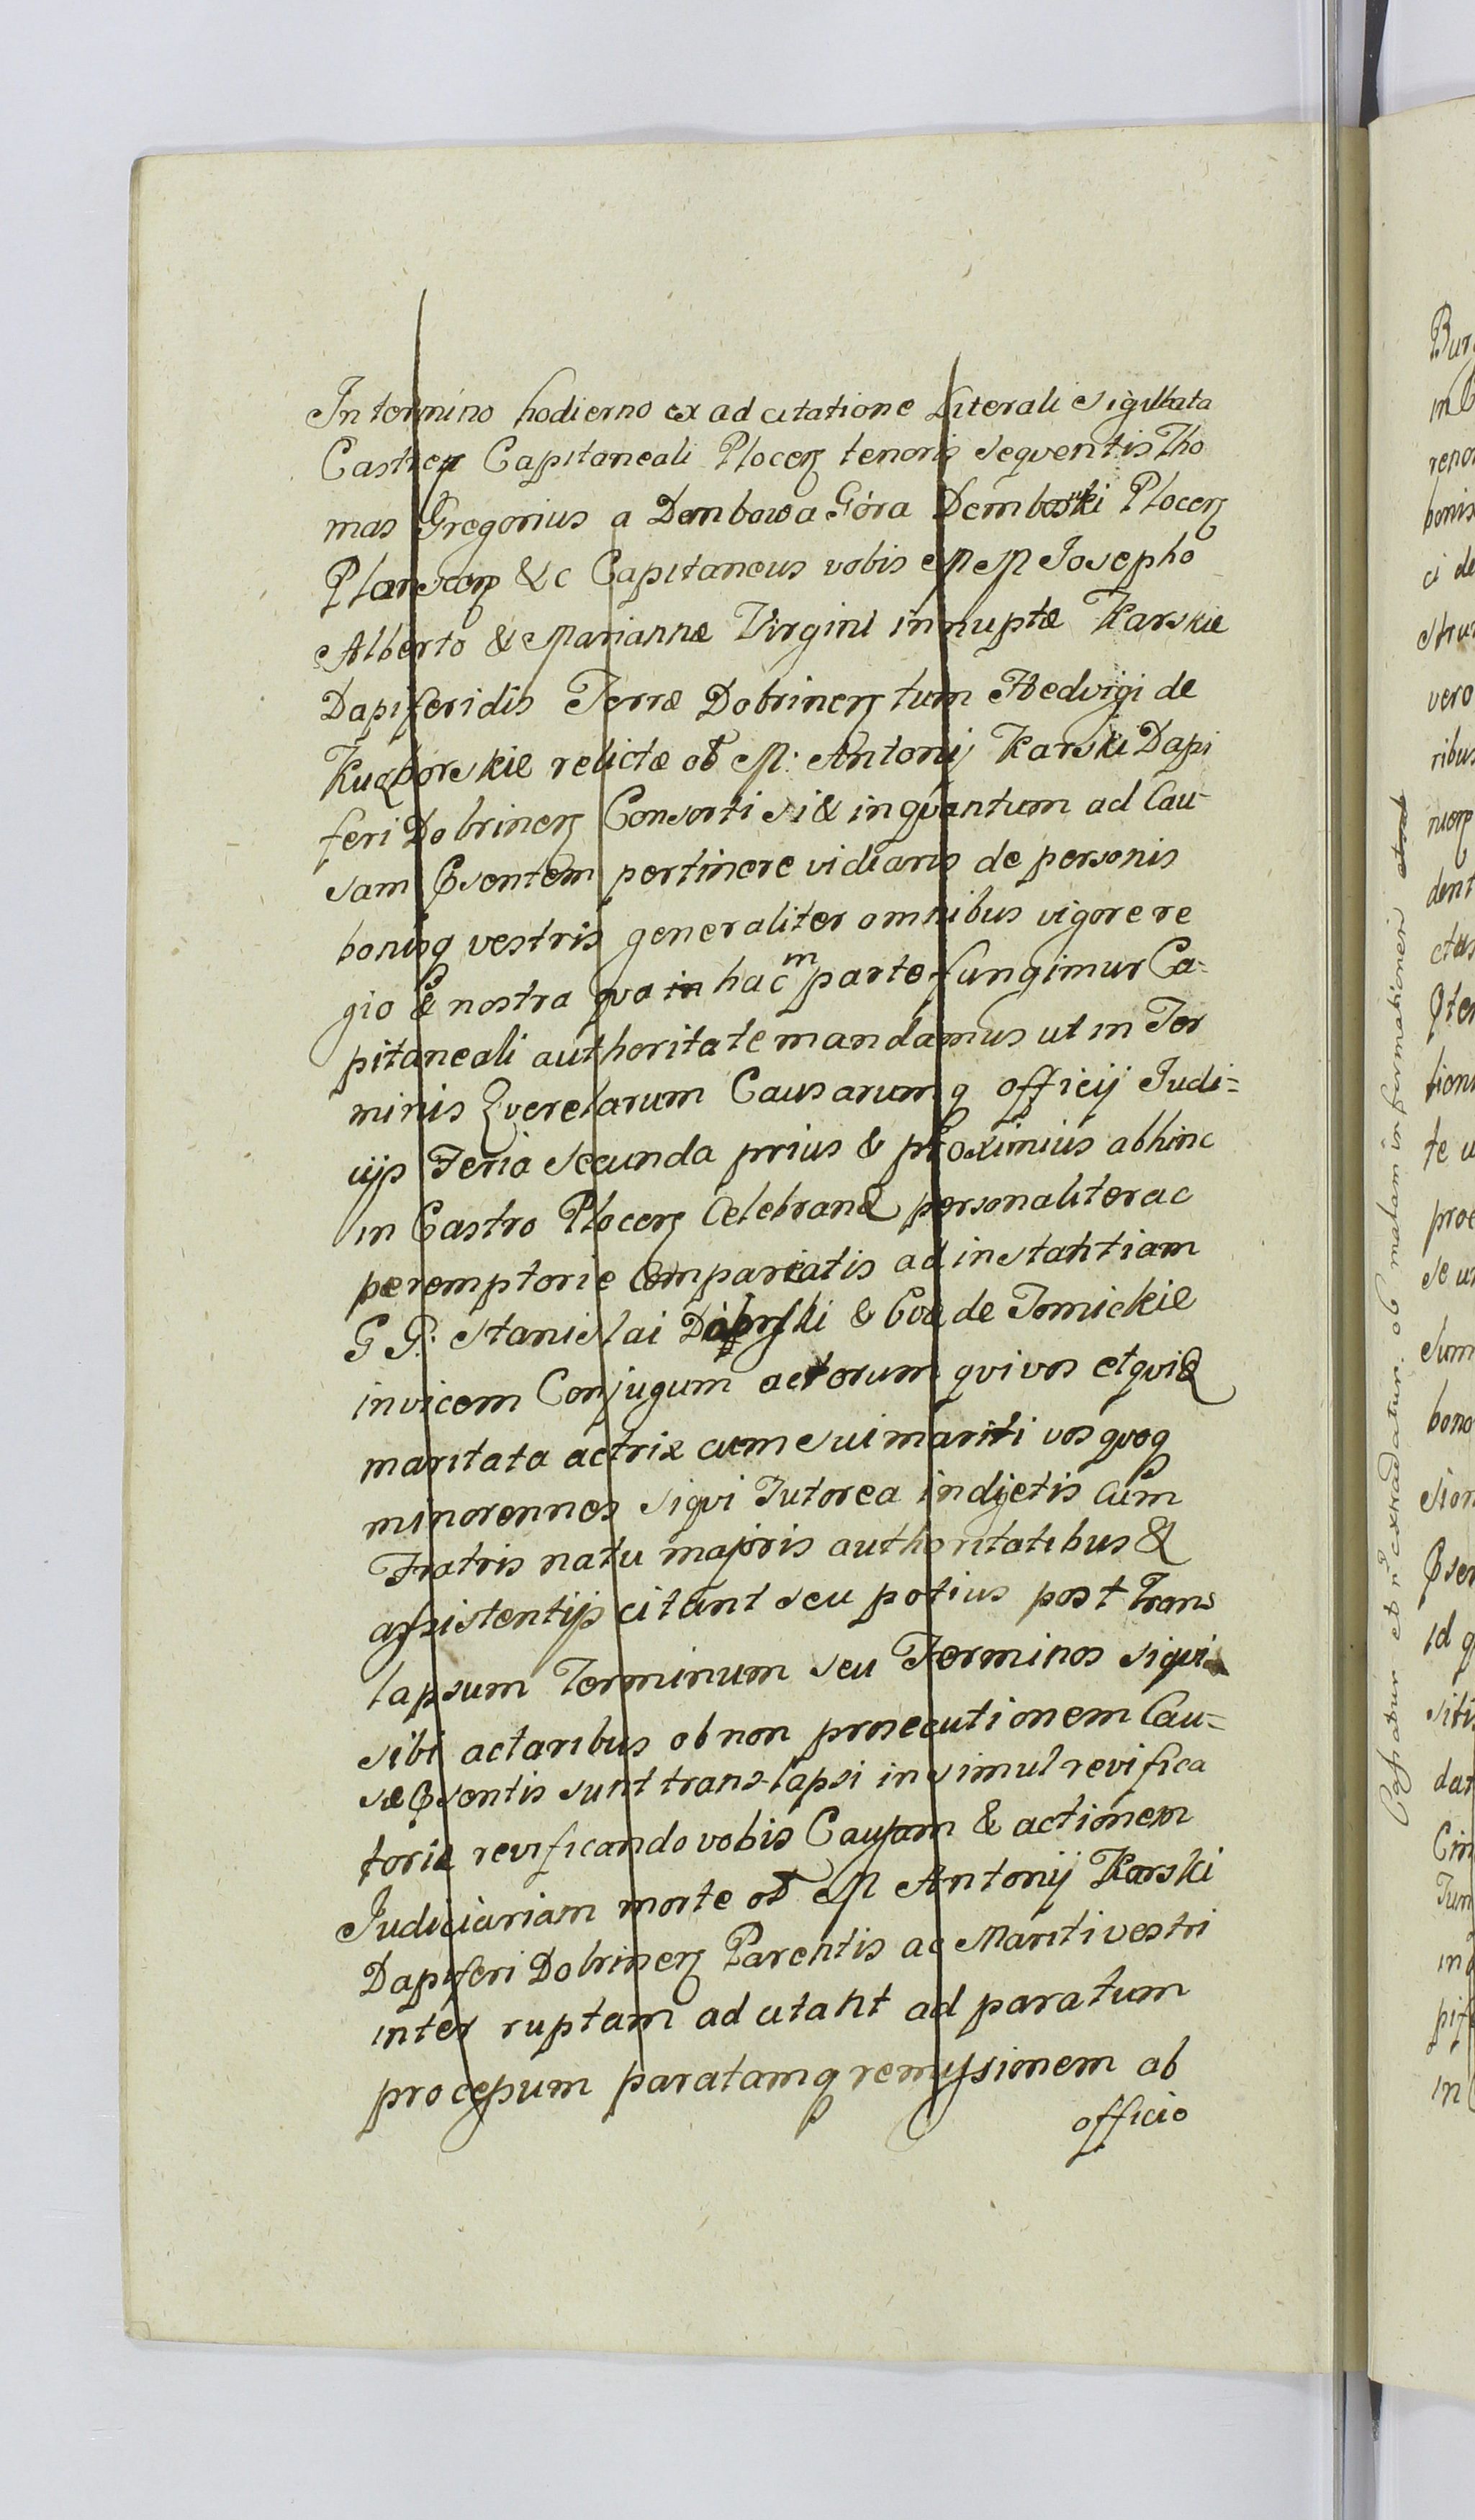 In termino hodierno ex ad citatione Literali Sigillata
Castren Capitaneali Plocen tenoris seqventis Tho
mas Gregorius a Dembowa Góra Dembowski Plocen
&c Capitaneus vobis M M Josepho
Alberto & Mariannæ Virgini innuptæ Karskie
Dapiferidis Terræ Dobrinen tum Hedvigi de
Kuczborskie relictæ ol M. Antonij Karski Dapi
feri Dobrinen Consorti si & inqvantum ad Cau-
sam Psentem pertinere vidiaris de personis
bonisq vestris generaliter omnibus vigore re
gio & nostra qva in hac parte fungimur Ca-
pitaneali authoritate mandamus ut in Ter
minis Qverelarum Causarumq officij Judi=
cijs Feria Secunda prius & proximius abhinc
in Castro Plocen Celebrand personaliter ac
peremptorie Compareatis ad instantiam
G G. Stanislai & Evæ de Tomickie
invicem Conjugum actorum qvi vos et qvid
maritata actrix cum sui mariti vos qvoq
minorennes siqvi Tutorea indijetis cum
Fratris natu majoris authoritatibus &
assistentijs citant seu potius post Trans
lapsum Terminum seu Terminos siqvi
sibi actoribus ob non prosecutionem Cau=
sæ Psentis sunt trans-lapsi in simul revifica
torie revificando vobis Causam & actionem
Judiciariam morte ol M Antonij Karski
Dapiferi Dobrinen Parentis ac Mariti vestri
inter ruptam ad citant ad paratum
processum paratamq remissionem ab
officio